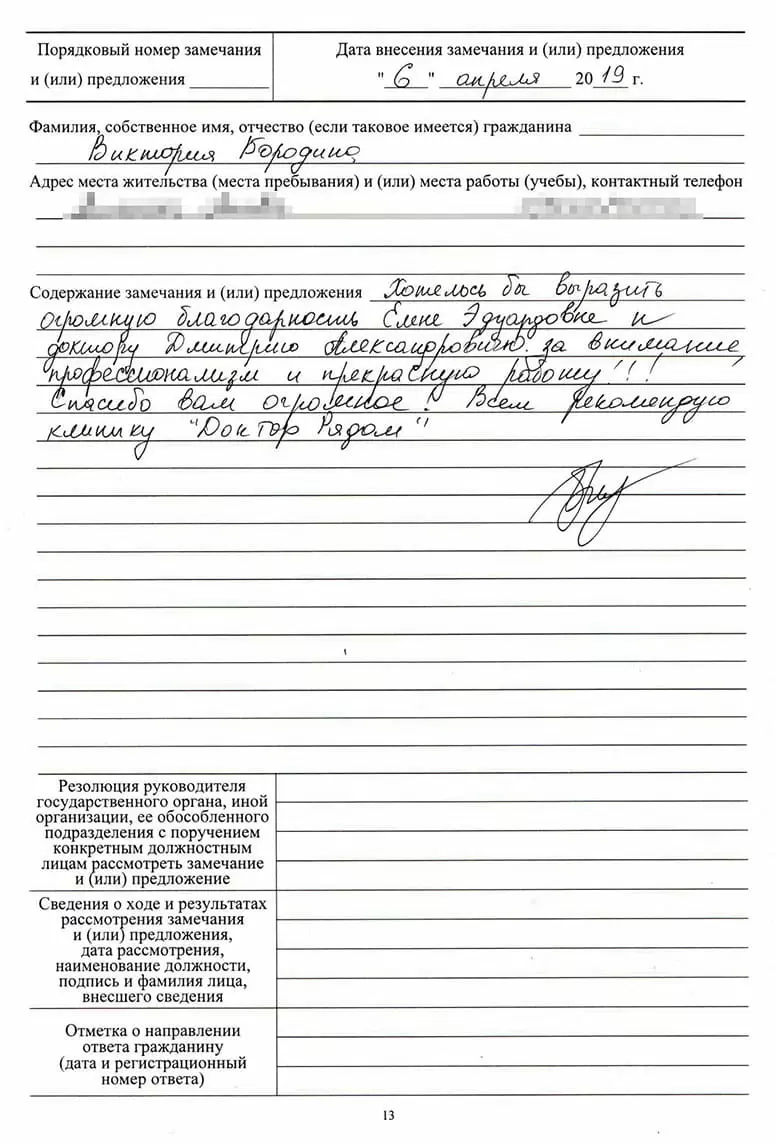 Порядковый номер замечания
и (или) предложения
Дата внесения замечания и (или) предложения
"6" апреля 2019 г.
Фамилия, собственное имя, отчество (если таковое имеется) гражданина
Виктория Бородина
Адрес места жительства (места пребывания) и (или) места работы (учебы), контактный телефон
Содержание замечания и (или) предложения Хотелось бы выразить
огромную благодарность Елене Эдуардовне и
доктору Дмитрию Александровичу за внимание,
профессионализм и прекрасную работу!!!
Спасибо вам огромное! Всем рекомендую
клинику "Доктор Рядом"!
Резолюция руководителя
государственного органа, иной
организации, ее обособленного
подразделения с поручением
конкретным должностным
лицам рассмотреть замечание
и (или) предложение
Сведения о ходе и результатах
рассмотрения замечания
и (или) предложения,
дата рассмотрения,
наименование должности,
подпись и фамилия лица,
внесшего сведения
Отметка о направлении
ответа гражданину
(дата и регистрационный
номер ответа)
13